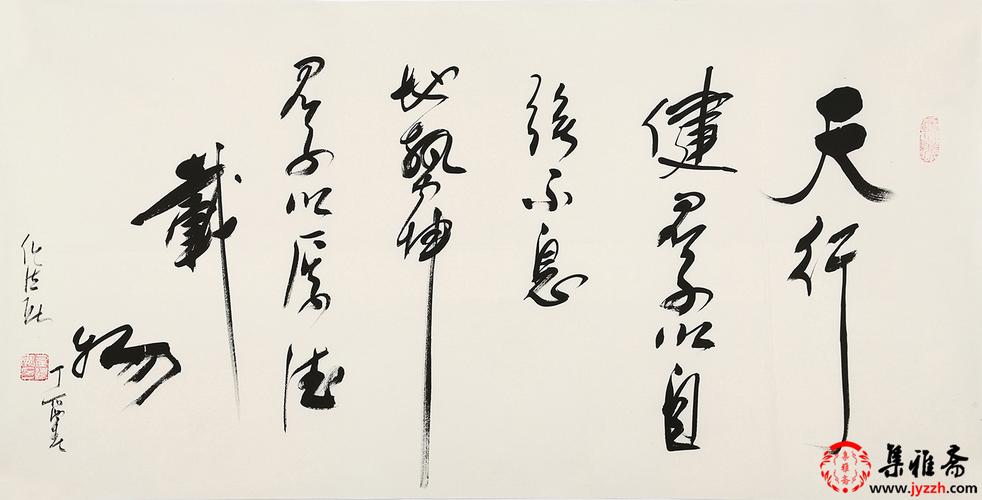 天行
健君子以自
強不息
地勢坤
君子以厚德
載
物
丁酉春
集雅斋
www.jyzzh.com